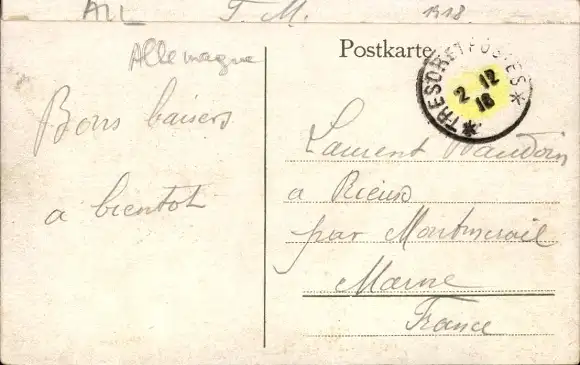 ALL F. M. 1918
Allemagne
Postkarte
TRESOR ET POSTES
2 12
18
Bons baisers
a bientot
Laurent Baudoin
a Rieux
par Montmirail
Marne
France